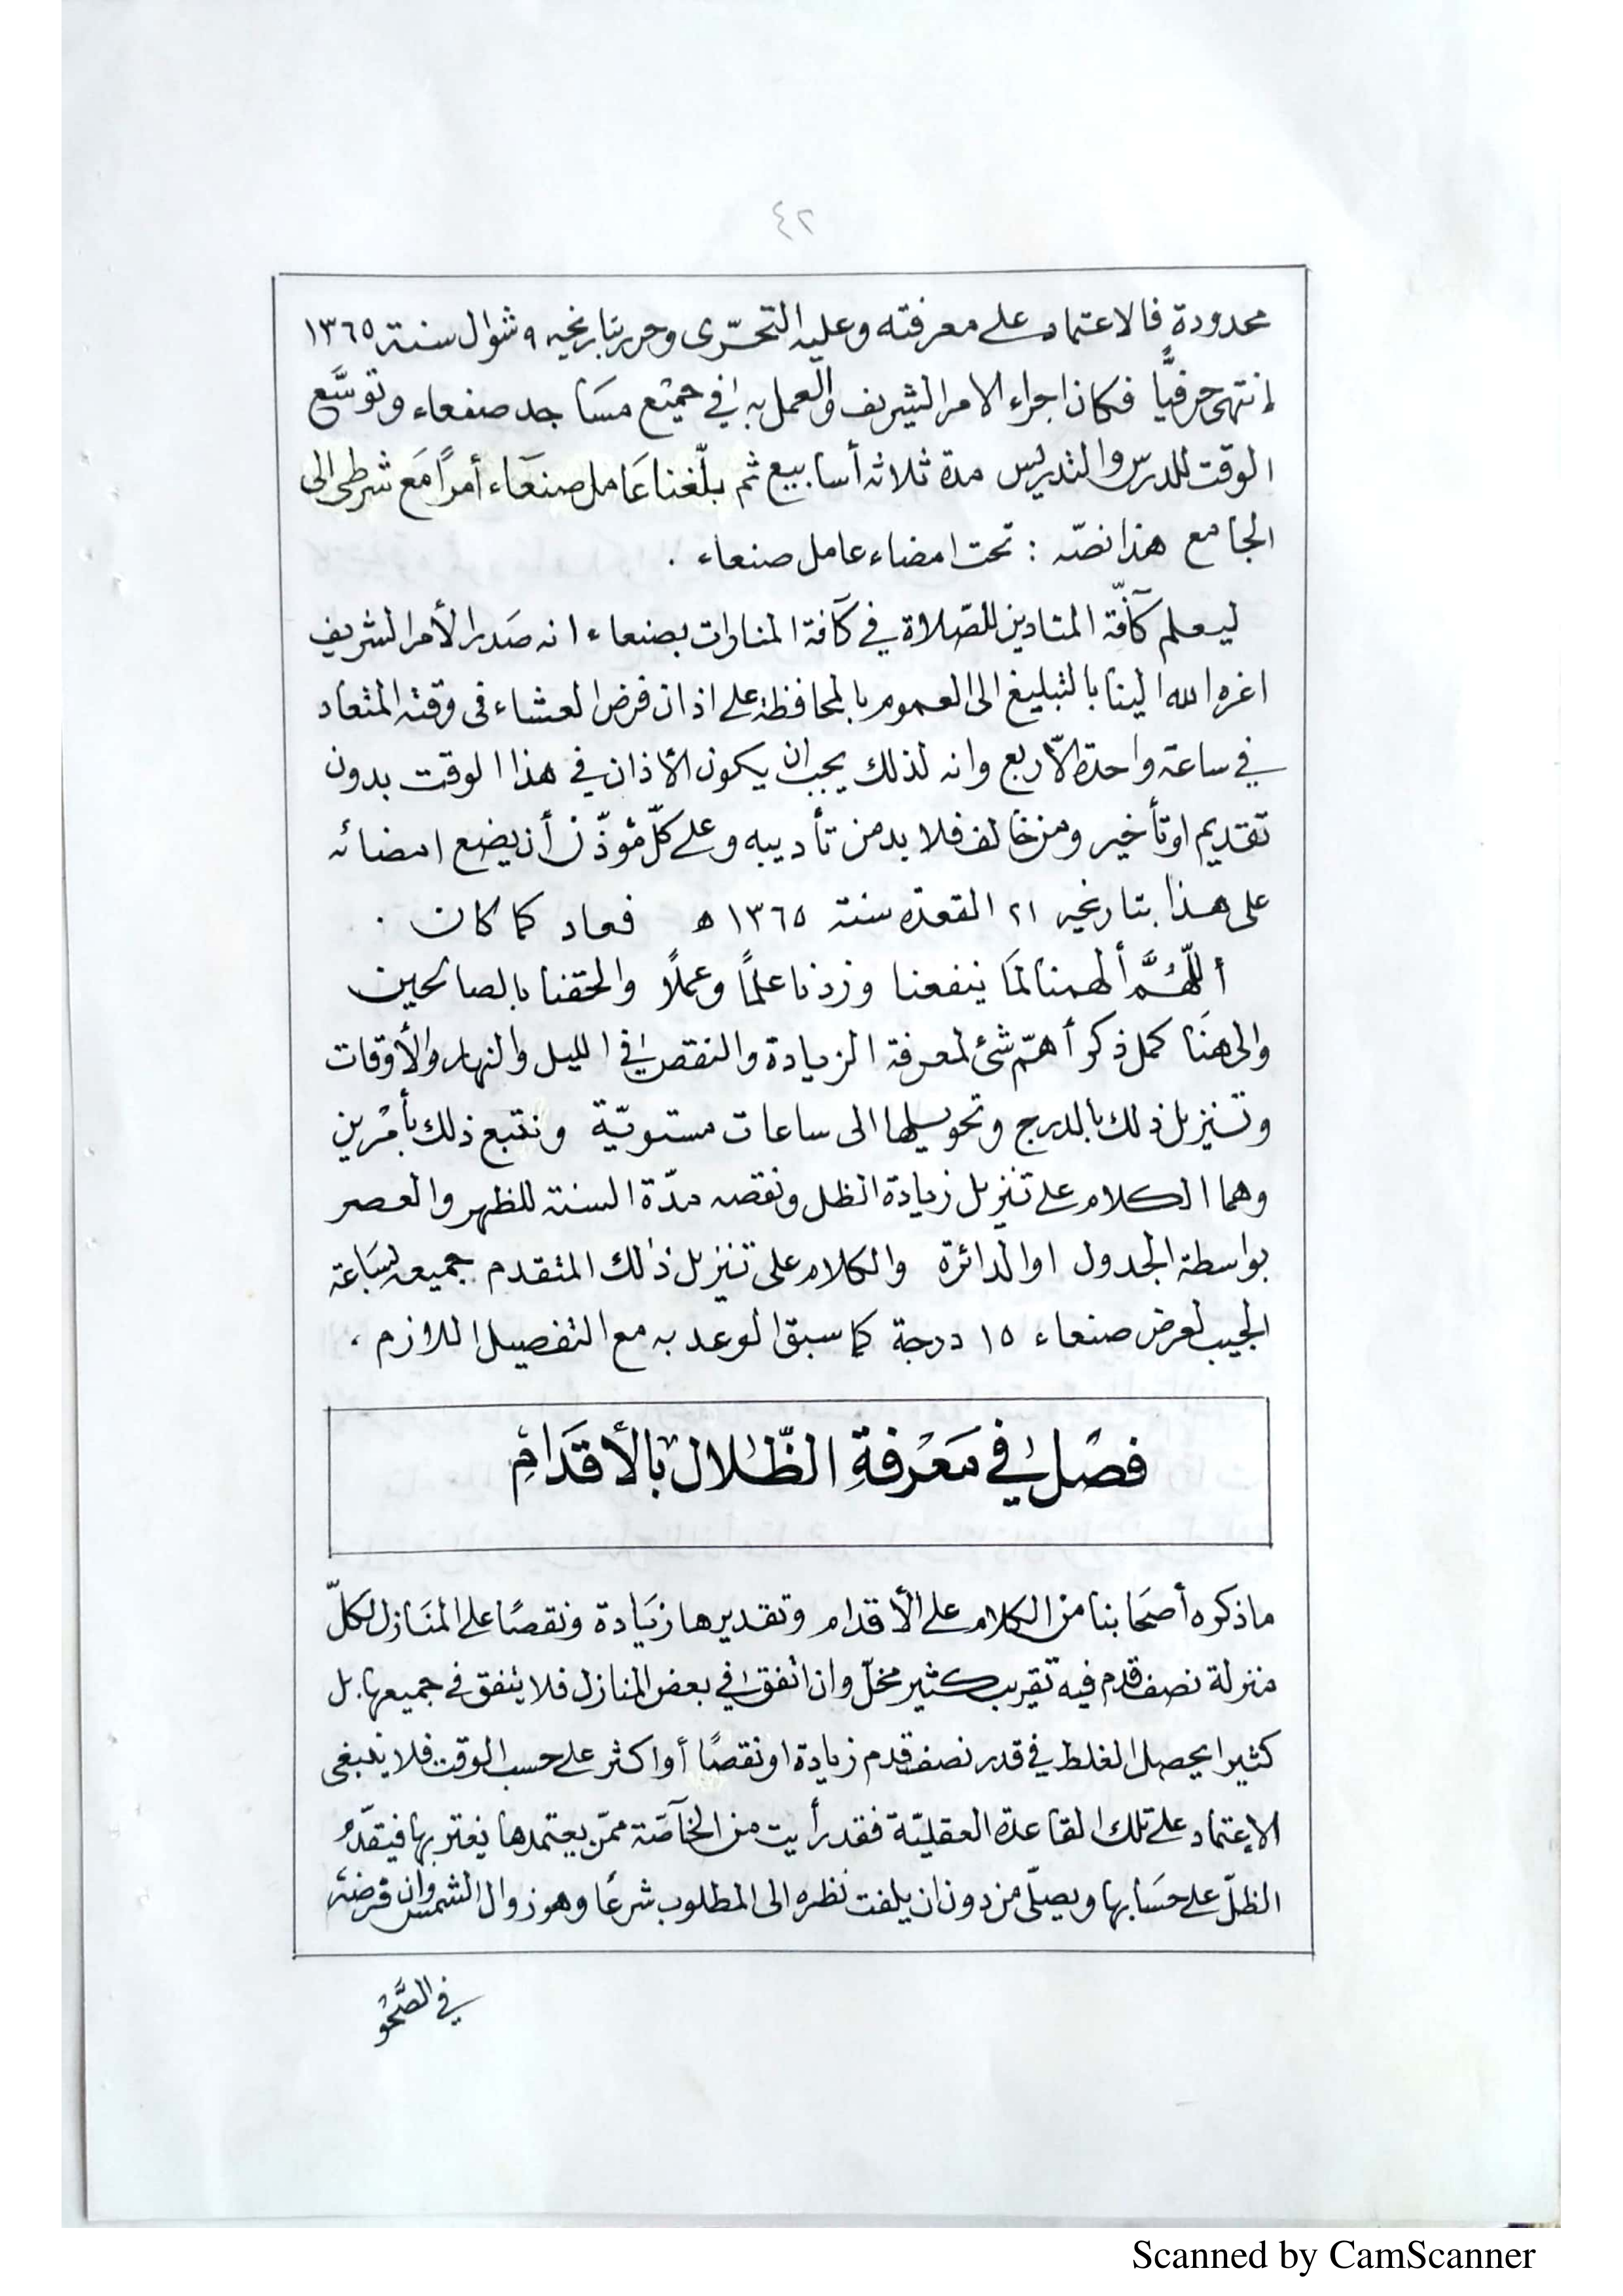 ٤٢
محدودة فالاعتماد على معرفته وعليه التحرّى وحرر بتاريخه ٩ شوال سنة ١٣٦٥
إنتهى حرفيًّا فكان اجراء الامر الشريف والعمل به في جميع مسَاجد صنعاء وتوسَّع
الوقت للدرس والتدريس مدة ثلاثه أسابيع ثم بلّغنا عَامل صنعَاء أمرًا مَع شرطى الى
الجامع هذا نصّه : تحت امضاء عامل صنعاء .
ليعلم كآفّة المنادين للصّلاة في كآفة المنارات بصنعاء انه صَدر الأمر الشريف
اعزه الله الينا بالتبليغ الى العموم بالمحافظة على اذان فرض العشاء فى وقته المتعاد
في ساعة واحدة الاّ ربع وانه لذلك يجب ان يكون الأذان في هذا الوقت بدون
تقديم او تأخير ومن خالف فلا بد من تأديبه وعلى كلّ مؤذّن أن يضع امضائه
على هذا بتاريخه ٢١ القعدة سنة ١٣٦٥ ه فعاد كما كان .
أللّهُمَّ ألهمنا لمَا ينفعنا وزدنا علمًا وعملًا والحقنا بالصالحين
والى هنَا كمل ذكر أهمّ شئ لمعرفة الزيادة والنقص في الليل والنهار والأوقات
وتنزيل ذلك بالدرج وتحويلها الى ساعات مستويّة ونتبع ذلك بأمرين
وهما الكلام على تنزيل زيادة الظل ونقصه مدّة السنة للظهر والعصر
بواسطة الجدول او الدائرة والكلام على تنزيل ذلك المتقدم جميعه لسَاعة
الجيب لعرض صنعاء ١٥ درجة كما سبق الوعد به مع التفصيل اللازم ،
فصْل في مَعْرفةِ الظّلال بالأقدَامِ
ماذكره أصحَابنا من الكلام على الأقدام وتقديرها زيَادة ونقصًا على المنَازل لكلّ
منزلة نصف قدم فيه تقريب كثير مخلّ وان اتفق في بعض المنازل فلا يتفق فى جميعها بل
كثيرا يحصل الغلط في قدر نصف قدم زيادة او نقصًا أو اكثر على حسب الوقت فلا ينبغى
الإعتماد على تلك القاعدة العقليّة فقد رأيت من الخآصّة ممّن يعتمدها يغتر بها فيقدّم
الظلّ على حسَابها ويصلّى من دون ان يلفت نظره الى المطلوب شرعًا وهو زوال الشمس وان فرضه
في الصَّحْو